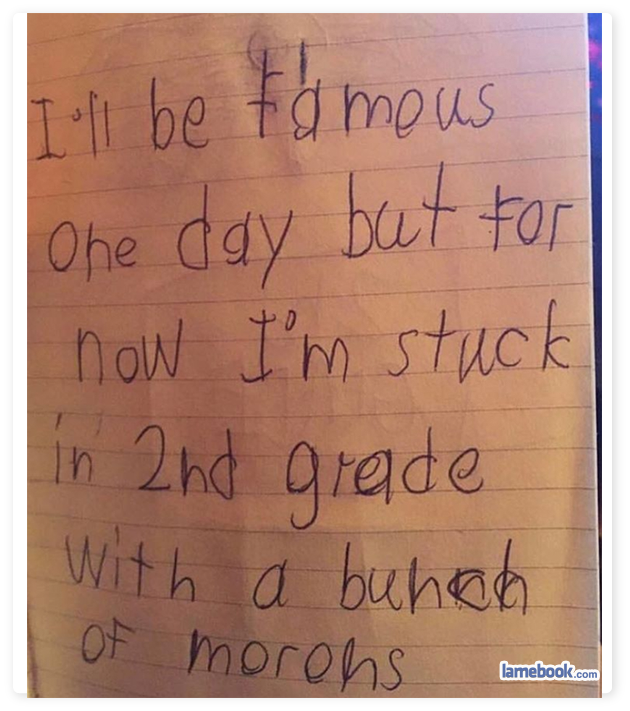 I'll be famous
one day but for
now I'm stuck
in 2nd grade
with a bunch
of morons
lamebook.com